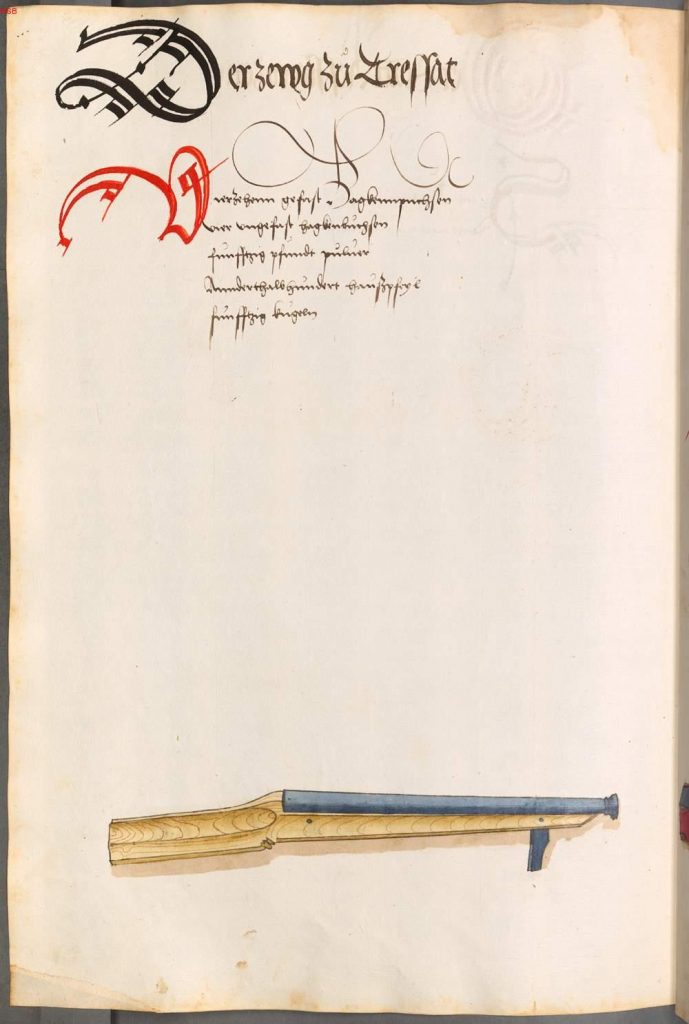 Der zewg zů Tressat
Vierzehenn gefast Hagkennpuchsen
vier vngefast hagkenbuchsen
funfftzig pfundt puluer
Annderthalbhundert haußpfeyl
funfftzig kugeln